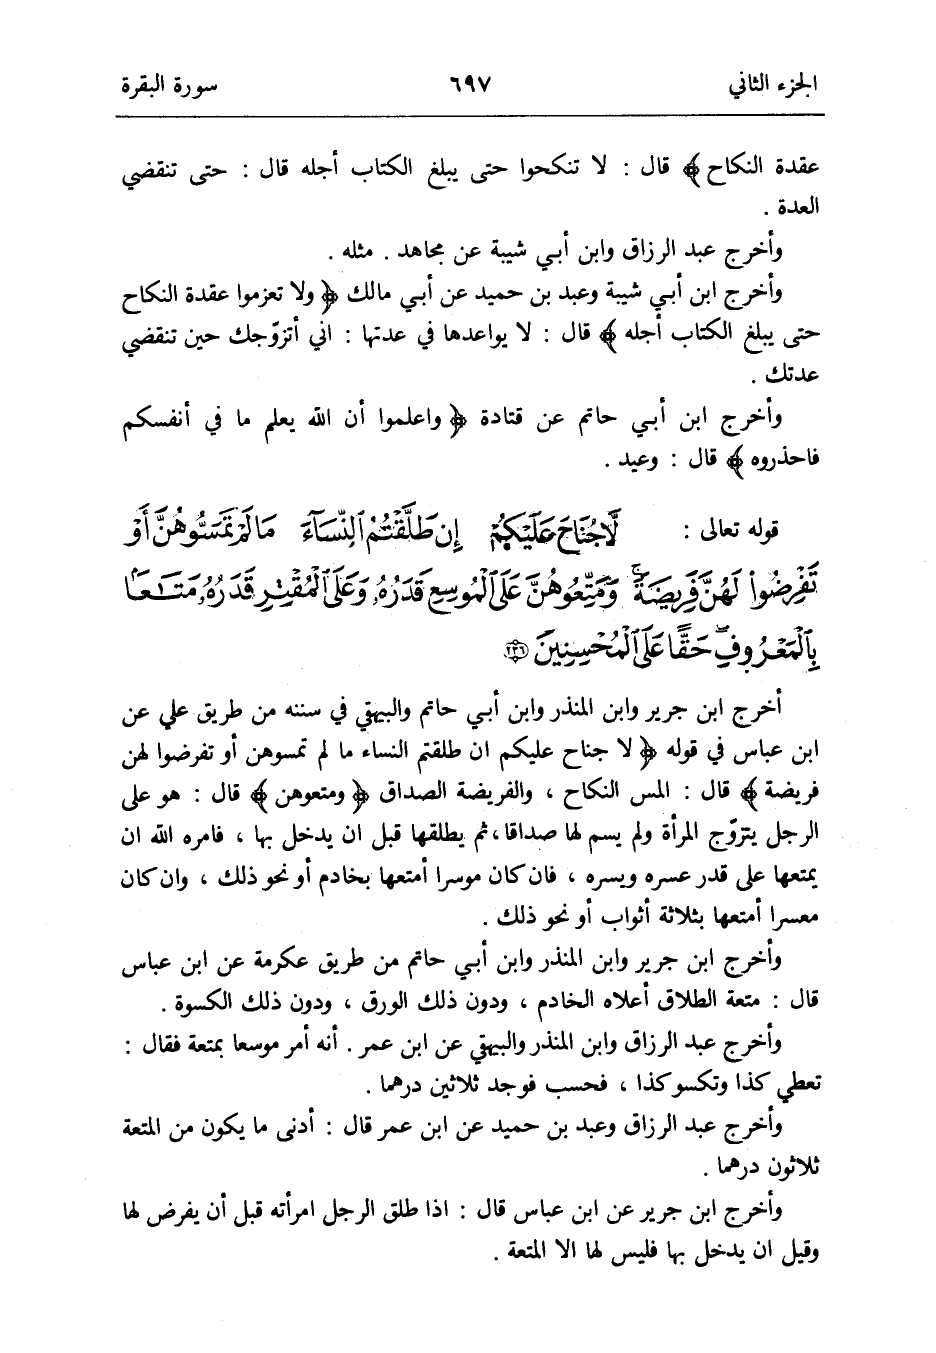 الجزء الثاني ٦٩٧ سورة البقرة
عقدة النكاح ﴾ قال : لا تنكحوا حتى يبلغ الكتاب أجله قال : حتى تنقضي
العدة .
وأخرج عبد الرزاق وابن أبي شيبة عن مجاهد . مثله .
وأخرج ابن أبي شيبة وعبد بن حميد عن أبي مالك ﴿ ولا تعزموا عقدة النكاح
حتى يبلغ الكتاب أجله ﴾ قال : لا يواعدها في عدتها : اني أتزوّجك حين تنقضي
عدتك .
وأخرج ابن أبي حاتم عن قتادة ﴿ واعلموا أن الله يعلم ما في أنفسكم
فاحذروه ﴾ قال : وعيد .
قوله تعالى : لَّا جُنَاحَ عَلَيْكُمْ إِن طَلَّقْتُمُ ٱلنِّسَآءَ مَا لَمْ تَمَسُّوهُنَّ أَوْ
تَفْرِضُوا۟ لَهُنَّ فَرِيضَةً ۚ وَمَتِّعُوهُنَّ عَلَى ٱلْمُوسِعِ قَدَرُهُۥ وَعَلَى ٱلْمُقْتِرِ قَدَرُهُۥ مَتَـٰعًۢا
بِٱلْمَعْرُوفِ ۖ حَقًّا عَلَى ٱلْمُحْسِنِينَ ٢٣٦
أخرج ابن جرير وابن المنذر وابن أبي حاتم والبيهقي في سننه من طريق علي عن
ابن عباس في قوله ﴿ لا جناح عليكم ان طلقتم النساء ما لم تمسوهن أو تفرضوا لهن
فريضة ﴾ قال : المس النكاح ، والفريضة الصداق ﴿ ومتعوهن ﴾ قال : هو على
الرجل يتزوّج المرأة ولم يسم لها صداقا ، ثم يطلقها قبل ان يدخل بها ، فامره الله ان
يمتعها على قدر عسره ويسره ، فان كان موسرا أمتعها بخادم أو نحو ذلك ، وان كان
معسرا أمتعها بثلاثة أثواب أو نحو ذلك .
وأخرج ابن جرير وابن المنذر وابن أبي حاتم من طريق عكرمة عن ابن عباس
قال : متعة الطلاق أعلاه الخادم ، ودون ذلك الورق ، ودون ذلك الكسوة .
وأخرج عبد الرزاق وابن المنذر والبيهقي عن ابن عمر . أنه أمر موسعا بمتعة فقال :
تعطي كذا وتكسو كذا ، فحسب فوجد ثلاثين درهما .
وأخرج عبد الرزاق وعبد بن حميد عن ابن عمر قال : أدنى ما يكون من المتعة
ثلاثون درهما .
وأخرج ابن جرير عن ابن عباس قال : اذا طلق الرجل امرأته قبل أن يفرض لها
وقبل ان يدخل بها فليس لها الا المتعة .